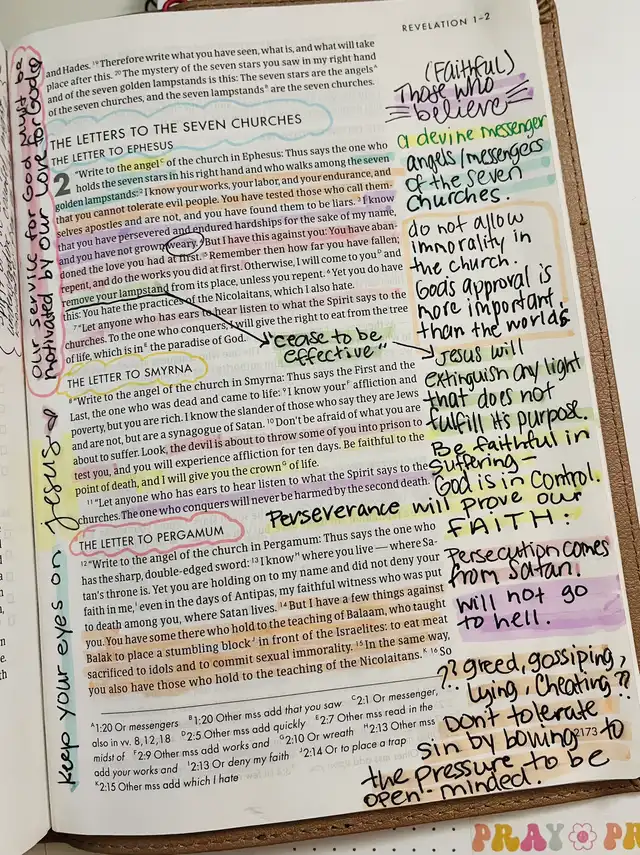 REVELATION 1–2
and Hades. 19 Therefore write what you have seen, what is, and what will take
place after this. 20 The mystery of the seven stars you saw in my right hand
and of the seven golden lampstands is this: The seven stars are the angels A
of the seven churches, and the seven lampstands B are the seven churches.
THE LETTERS TO THE SEVEN CHURCHES
THE LETTER TO EPHESUS
2 "Write to the angel C of the church in Ephesus: Thus says the one who
holds the seven stars in his right hand and who walks among the seven
golden lampstands: 2 I know your works, your labor, and your endurance, and
that you cannot tolerate evil people. You have tested those who call them-
selves apostles and are not, and you have found them to be liars. 3 I know
that you have persevered and endured hardships for the sake of my name,
and you have not grown weary. 4 But I have this against you: You have aban-
doned the love you had at first. 5 Remember then how far you have fallen;
repent, and do the works you did at first. Otherwise, I will come to you D and
remove your lampstand from its place, unless you repent. 6 Yet you do have
this: You hate the practices of the Nicolaitans, which I also hate.
7 "Let anyone who has ears to hear listen to what the Spirit says to the
churches. To the one who conquers, I will give the right to eat from the tree
of life, which is in E the paradise of God.
THE LETTER TO SMYRNA
8 "Write to the angel of the church in Smyrna: Thus says the First and the
Last, the one who was dead and came to life: 9 I know your F affliction and
poverty, but you are rich. I know the slander of those who say they are Jews
and are not, but are a synagogue of Satan. 10 Don't be afraid of what you are
about to suffer. Look, the devil is about to throw some of you into prison to
test you, and you will experience affliction for ten days. Be faithful to the
point of death, and I will give you the crown G of life.
11 "Let anyone who has ears to hear listen to what the Spirit says to the
churches. The one who conquers will never be harmed by the second death.
THE LETTER TO PERGAMUM
12 "Write to the angel of the church in Pergamum: Thus says the one who
has the sharp, double-edged sword: 13 I know H where you live — where Sa-
tan's throne is. Yet you are holding on to my name and did not deny your
faith in me, I even in the days of Antipas, my faithful witness who was put
to death among you, where Satan lives. 14 But I have a few things against
you. You have some there who hold to the teaching of Balaam, who taught
Balak to place a stumbling block J in front of the Israelites: to eat meat
sacrificed to idols and to commit sexual immorality. 15 In the same way,
you also have those who hold to the teaching of the Nicolaitans. K 16 So
A 1:20 Or messengers B 1:20 Other mss add that you saw C 2:1 Or messenger,
also in vv. 8,12,18 D 2:5 Other mss add quickly E 2:7 Other mss read in the
midst of F 2:9 Other mss add works and G 2:10 Or wreath H 2:13 Other mss
add your works and I 2:13 Or deny my faith J 2:14 Or to place a trap
K 2:15 Other mss add which I hate
2173
(Faithful)
Those who
believe
a devine messenger
angels/messengers
of the seven
churches.
do not allow
immorality in
the church.
Gods approval is
more important
than the worlds
"cease to be
effective"
Jesus will
extinguish any light
that does not
fulfill its purpose.
Be faithful in
suffering –
God is in control.
Perseverance will prove our
FAITH.
Persecution comes
from Satan.
will not go
to hell.
?? greed, gossiping,
lying, cheating ??
Don't tolerate
sin by bowing to
the pressure to be
open-minded.
our service for God must be
motivated by our love for God
keep your eyes on Jesus
PRAY PR